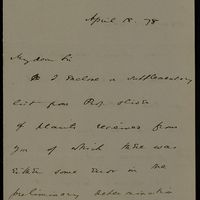 April 18. 78
My dear Sir
I enclose a supplementary
list from Prof. Oliver
of plants received from
you of which there was
either some error in the
preliminary determination